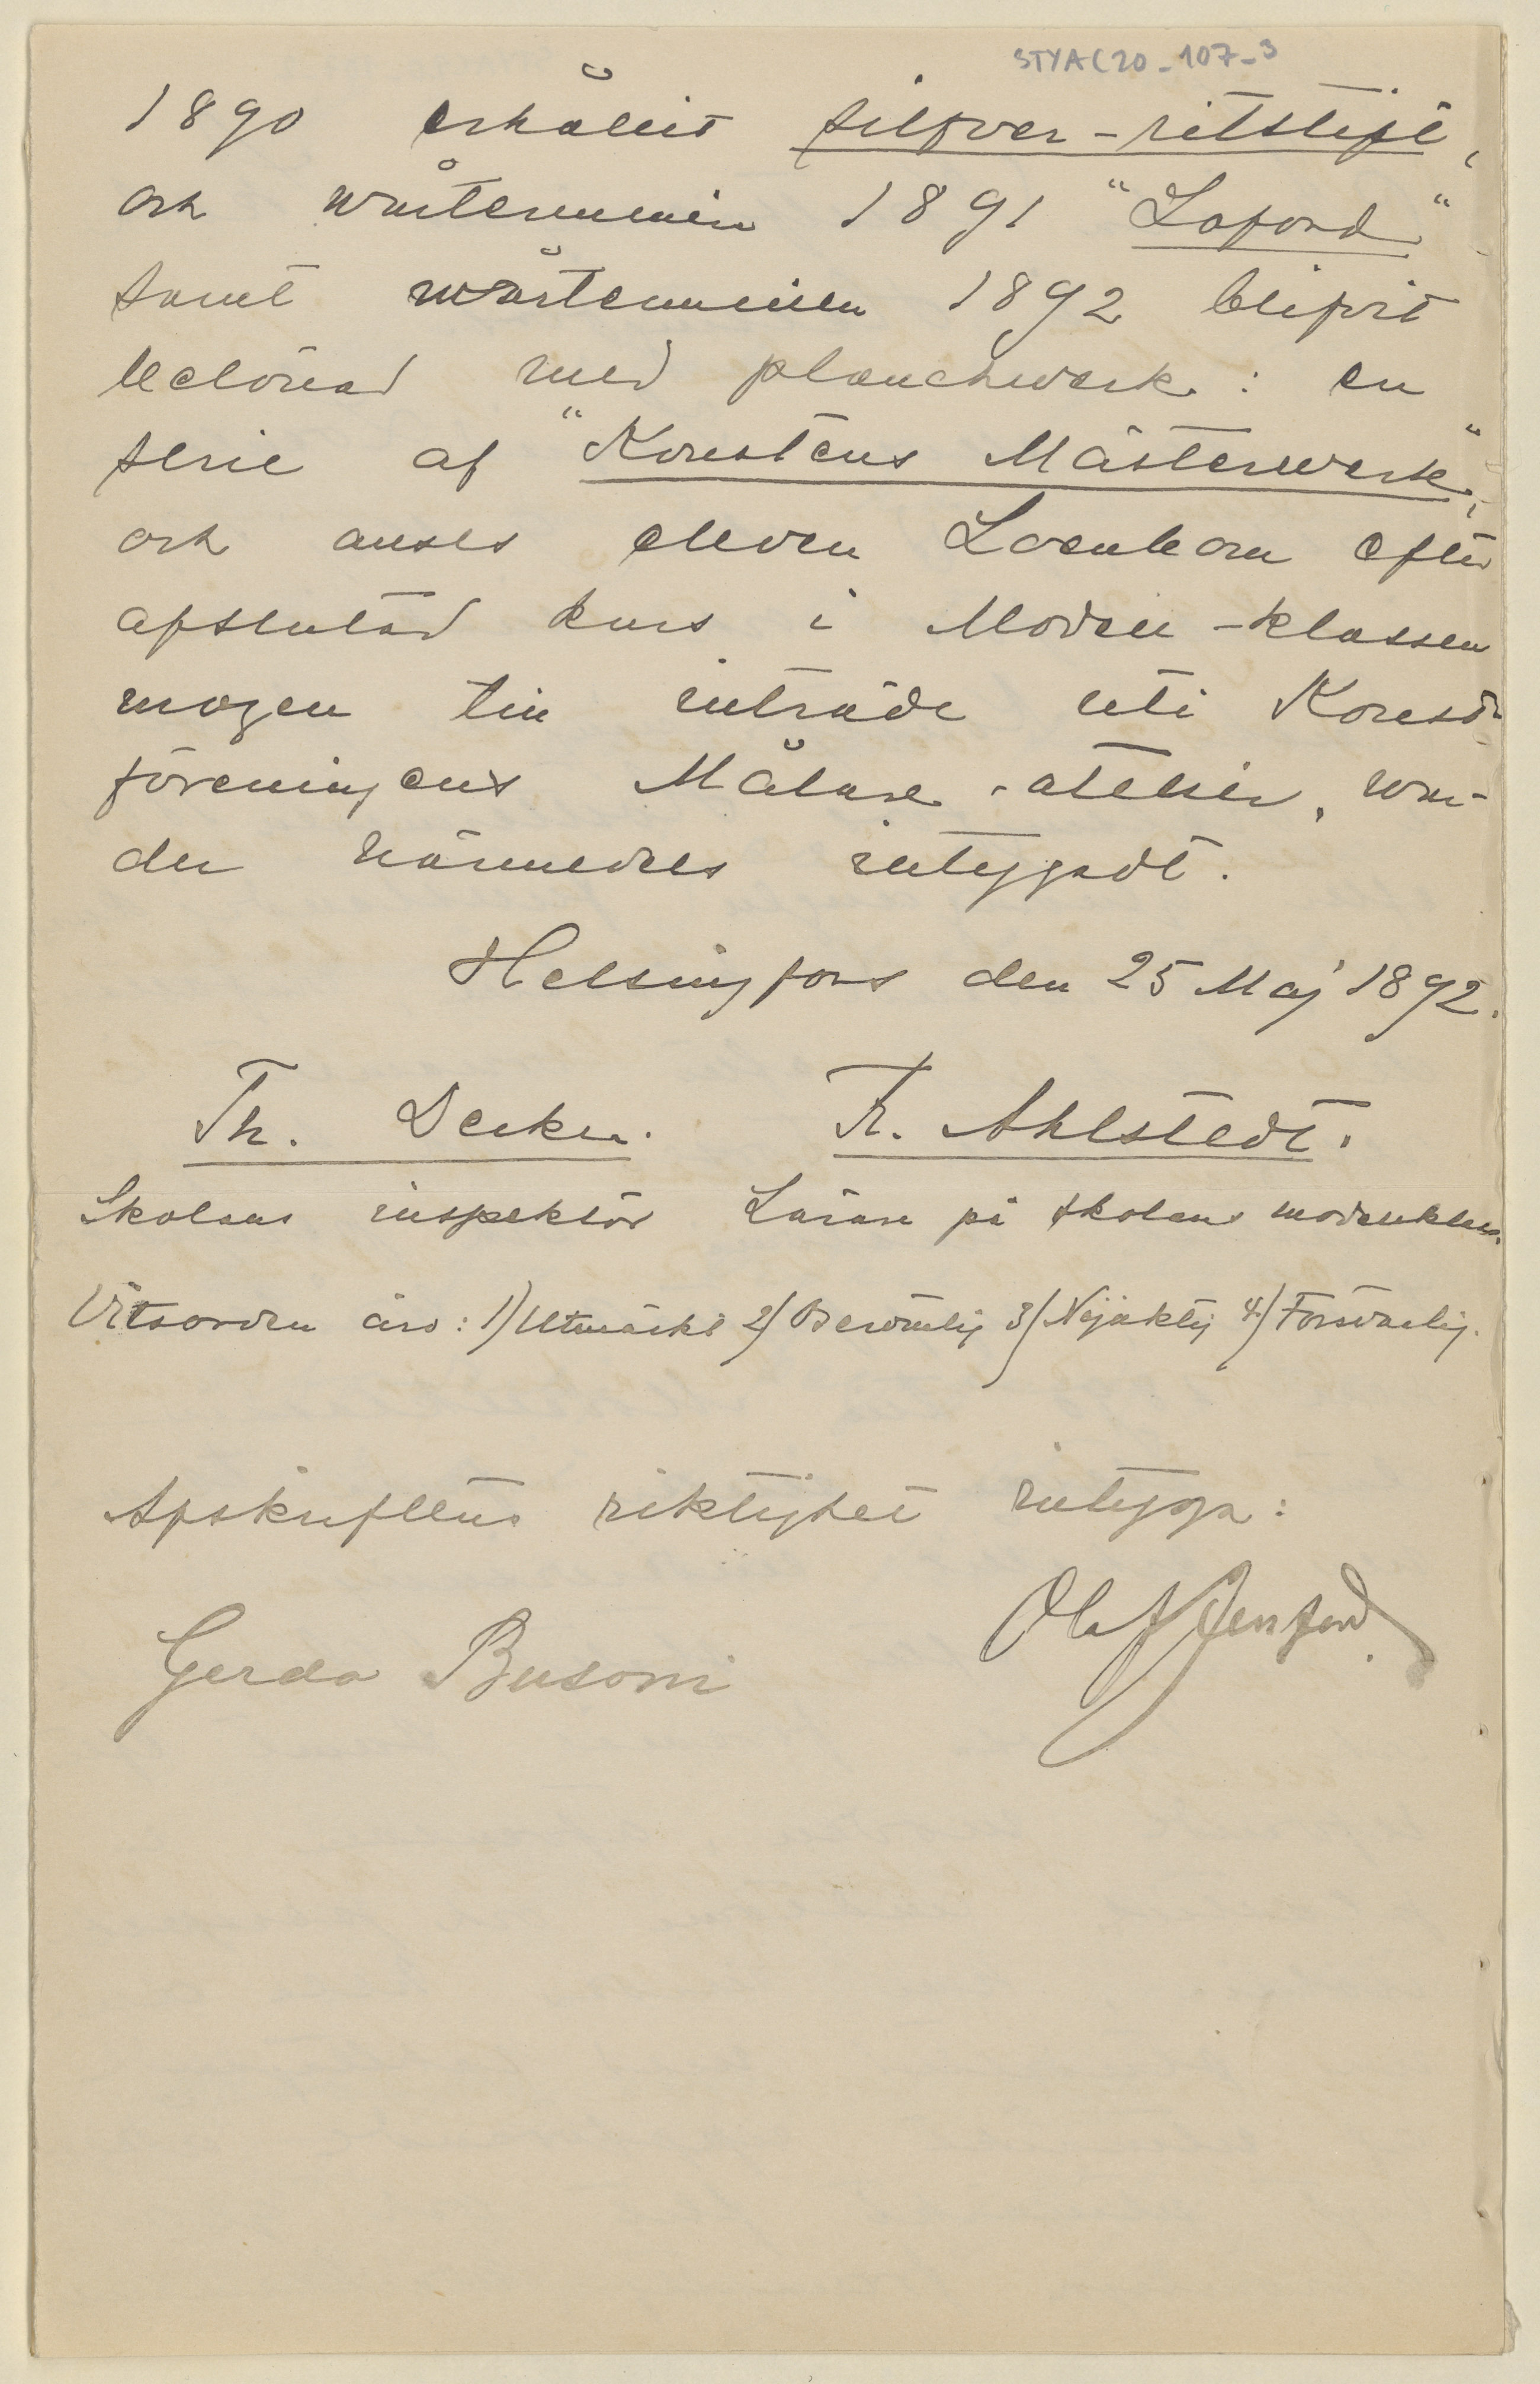 STYA C20_107_3
1890 erhållit silfver-ritstift,
och vårterminen 1891 "Laford"
samt vårterminen 1892 blifvit
belönad med planchwerk: en
serie af "Konstens Mästerwerk",
och anses eleven Loenbom efter
afslutad kurs i Modell-klassen
mogen till inträde uti Konst-
föreningens Målare-atelier, war-
der härmedels intygadt.
Helsingfors den 25 Maj 1892.
Th. Decker. F. Ahlstedt.
Skolans inspektör Lärare på skolans modellklass.
Vitsorden äro: 1) Utmärkt 2) Berömlig 3) Nöjaktig 4) Försvarlig.
Afskriftens riktighet intyga:
Gerda Busoni Olof